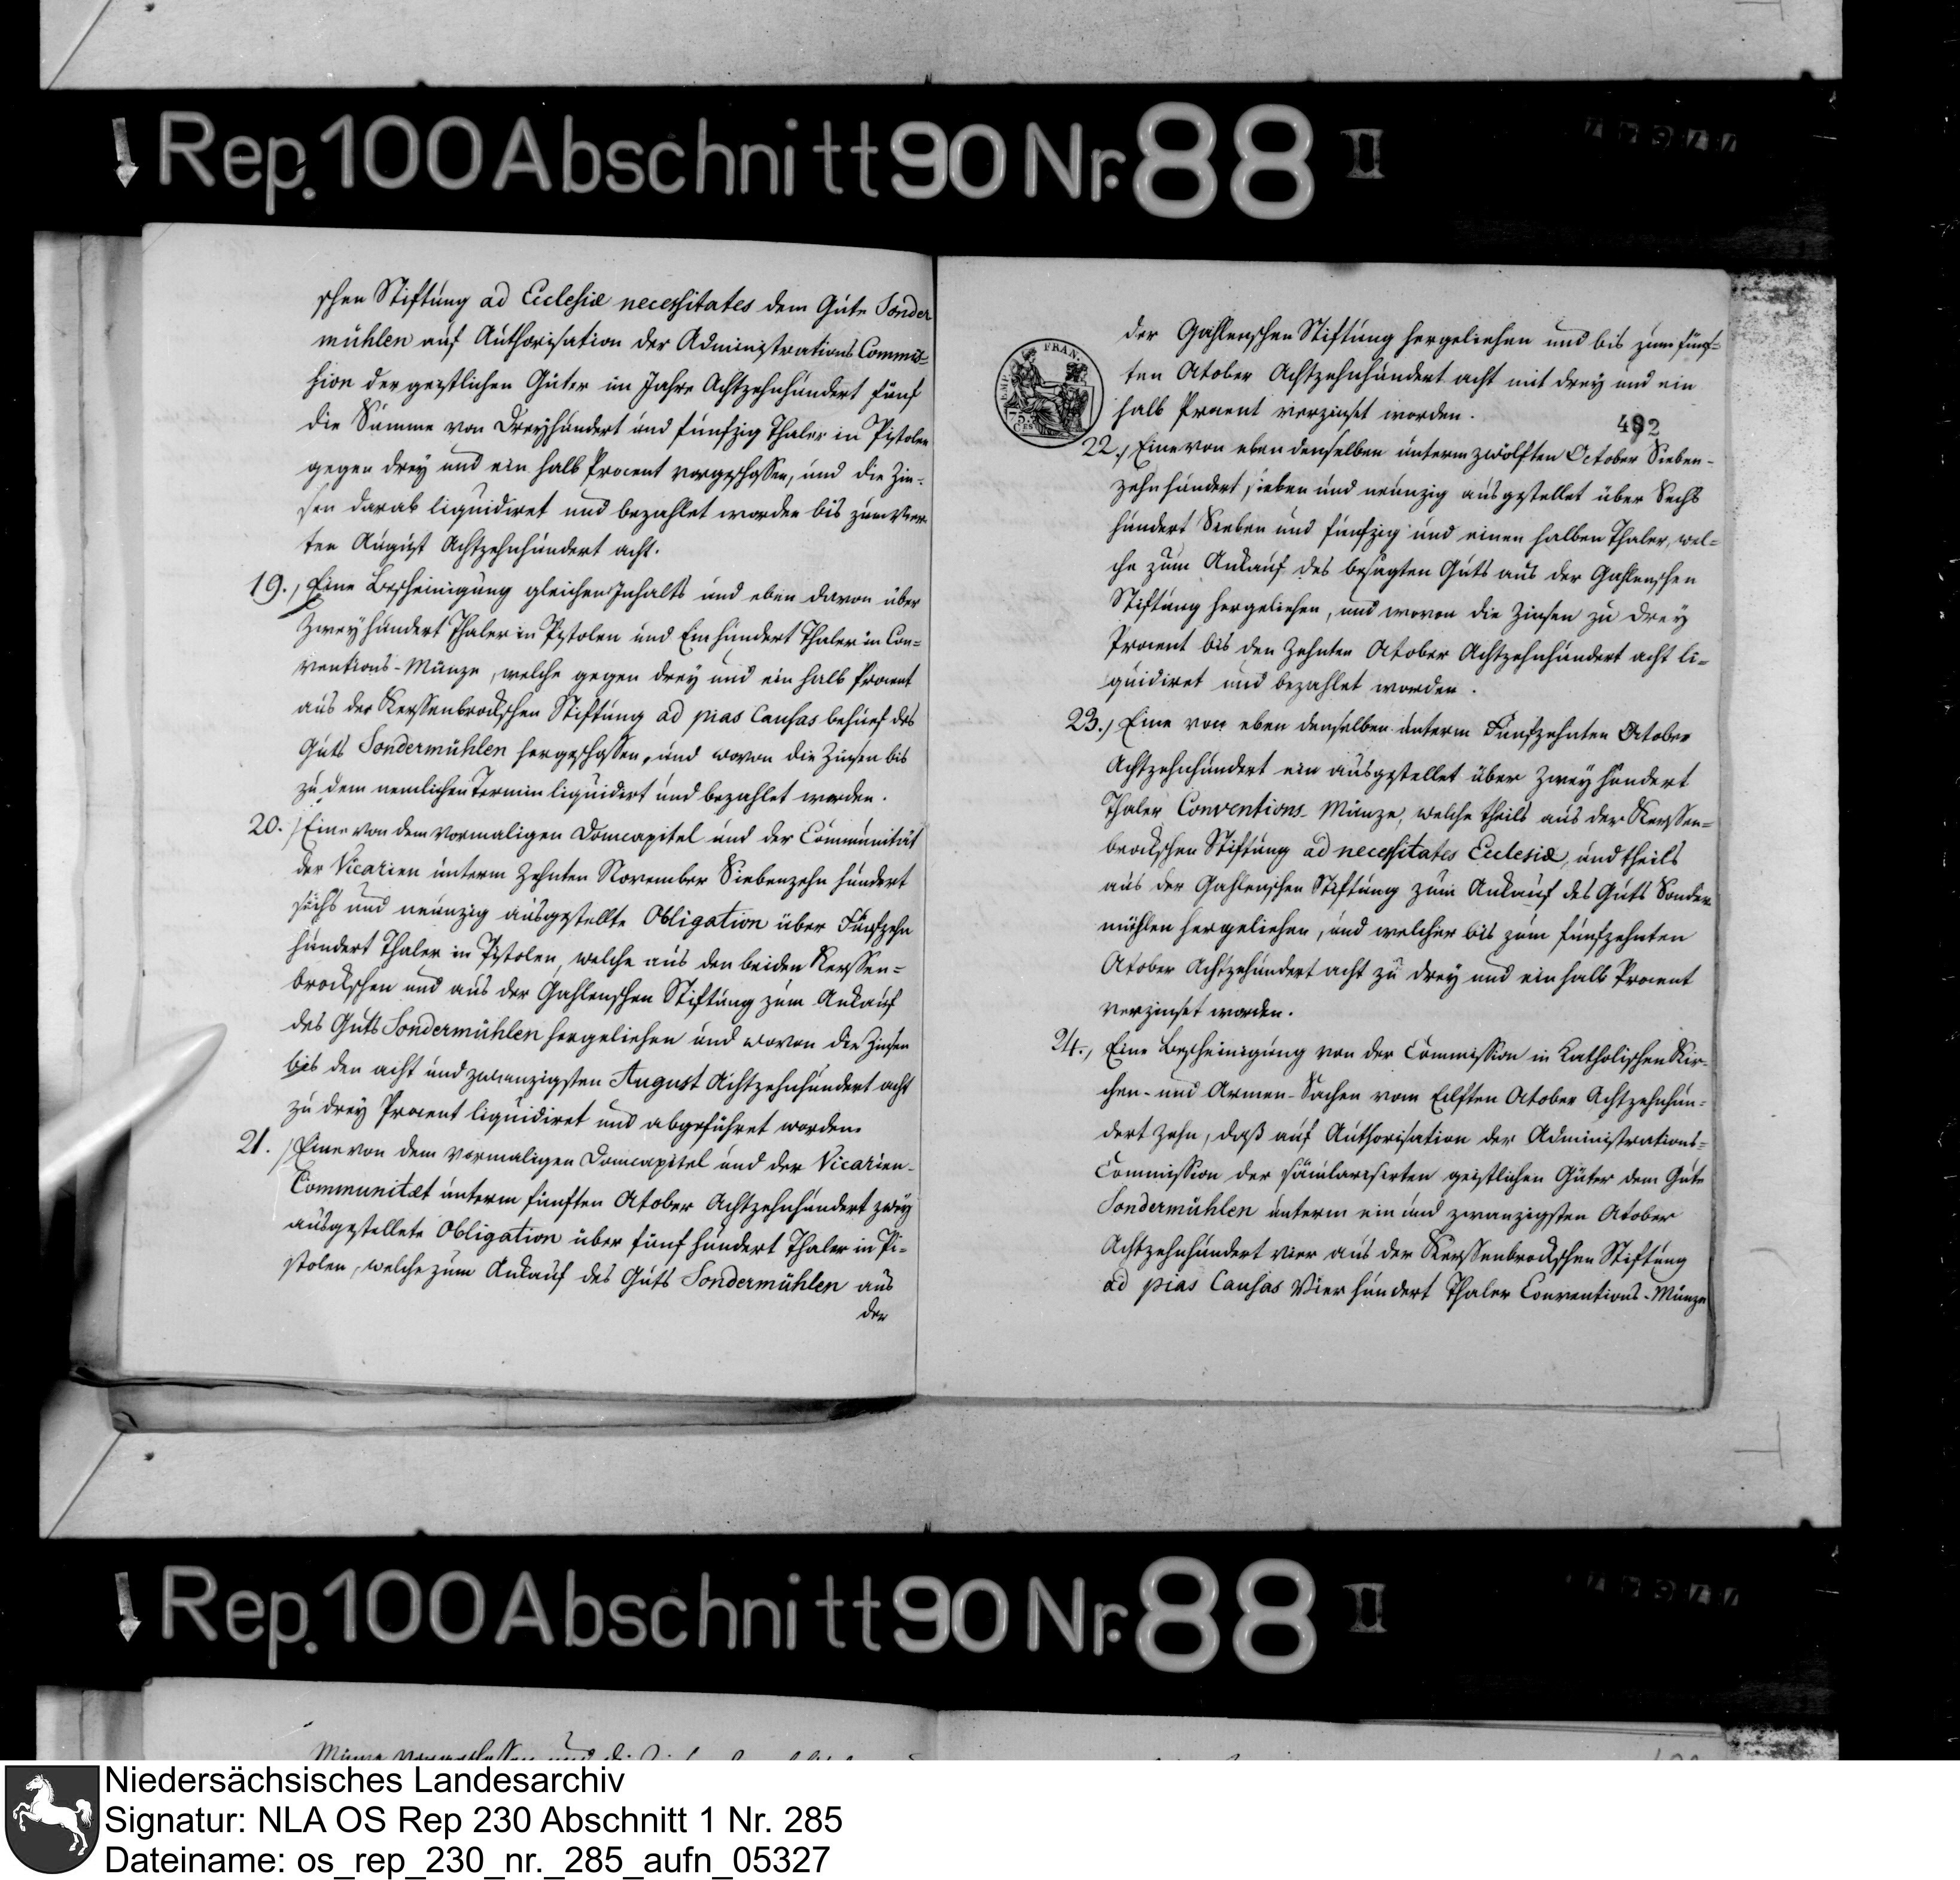 Rep. 100 Abschnitt 90 Nr. 88 II
schen Stiftung ad Ecclesiæ necessitates dem Gute Sonder
mühlen auf Authorisation der Administrations Commis-
sion der geistlichen Güter im Jahre Achtzehnhundert fünf
die Summe von Dreyhundert und fünfzig Thaler in Pistolen
gegen drey und ein halb Procent vorgeschossen, und die Zin-
sen darab liquidiret und bezahlet worden bis zum Vier-
ten August Achtzehnhundert acht.
19., Eine Bescheinigung gleichen Inhalts und eben davon über
Zweyhundert Thaler in Pistolen und Einhundert Thaler in Con-
ventions-Münze, welche gegen drey und ein halb Procent
aus der Kerssenbrockschen Stiftung ad pias Causas behuef des
Guts Sondermühlen hergeschossen, und wovon die Zinsen bis
zu dem nemlichen Termin liquidirt und bezahlet worden.
20. Eine von dem vormaligen Domcapitel und der Communität
der Vicarien unterm Zehnten November Siebenzehn hundert
sechs und neunzig ausgestellte Obligation über Fünfzehn
hundert Thaler in Pistolen, welche aus den beiden Kerssen-
brockschen und aus der Gahlenschen Stiftung zum Ankauf
des Guts Sondermühlen hergeliehen und wovon die Zinsen
bis den acht und zwanzigsten August Achtzehnhundert acht
zu drey Procent liquidiret und abgeführet worden.
21. Eine von dem vormaligen Domcapitel und der Vicarien-
Communitæt unterm fünften October Achtzehnhundert zwey
ausgestellete Obligation über fünf hundert Thaler in Pi-
stolen, welche zum Ankauf des Guts Sondermühlen aus
der
EMP. FRAN.
75
CES
der Gahlenschen Stiftung hergeliehen und bis zum fünf-
ten October Achtzehnhundert acht mit drey und ein
halb Procent verzinset worden.
492
22., Eine von eben denselben unterm zwölften October Sieben-
zehnhundert sieben und neunzig ausgestellet über Sechs
hundert Sieben und fünfzig und einen halben Thaler, wel-
che zum Ankauf des besagten Guts aus der Gahlenschen
Stiftung hergeliehen, und wovon die Zinsen zu drey
Procent bis den Zehnten October Achtzehnhundert acht li-
quidiret und bezahlet worden.
23., Eine von eben denselben unterm Fünfzehnten October
Achtzehnhundert ein ausgestellet über Zwey hundert
Thaler Conventions-Münze, welche theils aus der Kerssen-
brockschen Stiftung ad necessitates Ecclesiæ, und theils
aus der Gahlenschen Stiftung zum Ankauf des Guts Sonder
mühlen hergeliehen, und welcher bis zum fünfzehnten
October Achtzehundert acht zu drey und ein halb Procent
verzinset worden.
24., Eine Bescheinigung von der Commission in Katholischen Kir-
chen- und Armen-Sachen vom Eilften October Achtzehnhun-
dert Zehn, daß auf Authorisation der Administrations-
Commission der säcularisirten geistlichen Güter dem Gute
Sondermühlen unterm ein und zwanzigsten October
Achtzehnhundert vier aus der Kerssenbrockschen Stiftung
ad pias Causas Vier hundert Thaler Conventions-Münze
Rep. 100 Abschnitt 90 Nr. 88 II
Niedersächsisches Landesarchiv
Signatur: NLA OS Rep 230 Abschnitt 1 Nr. 285
Dateiname: os_rep_230_nr._285_aufn_05327